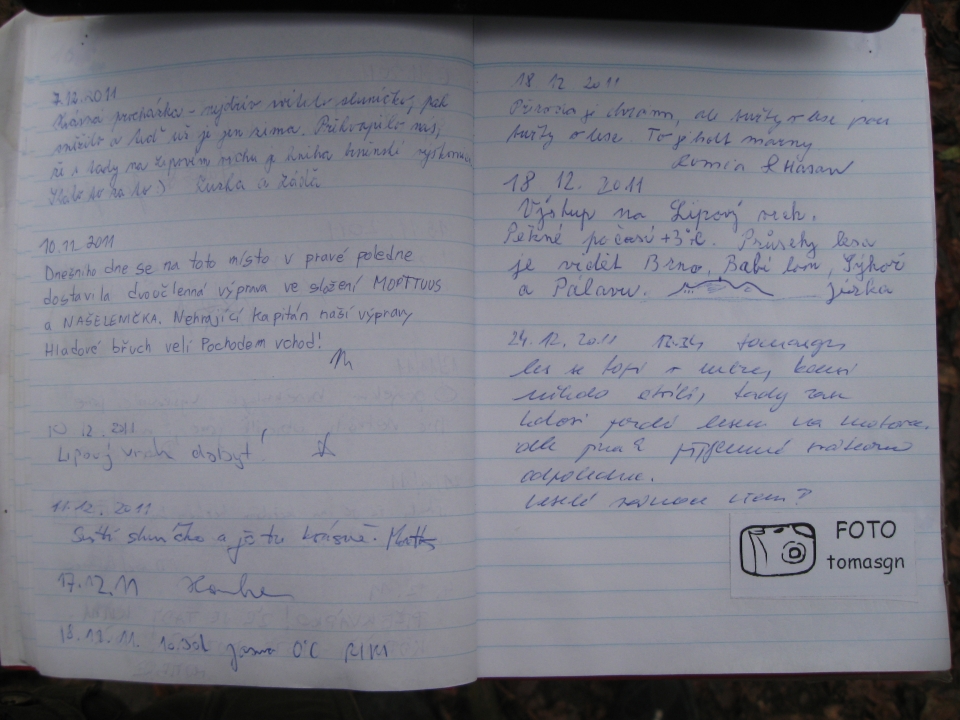 7.12.2011
procházka - nejdřív svítilo sluníčko, pak
sněžilo a teď už je jen zima. Překvapilo nás,
že i tady na Lipovém vrchu je kniha
Stálo to za to :) a
10.12 2011
Dnešního dne se na toto místo v pravé poledne
dostavila dvoučlenná výprava ve složení MOPTTUUS
a NAŠELENIČKA. Nehrající kapitán naší výpravy
Hladové břuch velí Pochodem vchod!
10 12. 2011
Lipový vrch dobyt!
11.12. 2011
Svítí sluníčko a je tu krásně.
17.12.11
18.12.11 10.30h jasno 0°C RIKI
18.12 2011
Příroda je, ale
v lese. To je holt marný
&
18 12. 2011
Výstup na Lipový vrch.
Pěkné počasí +3°C. Průseky lesa
je vidět Brno, Babí lom, Sýkoř
a Pálavu. Jirka
24.12. 2011 tomasgn
les se topí v mlze, kdosi
někde střílí, tady zas
kdosi jezdí lesem na motorce.
ale jinak příjemné
odpoledne.
veselé vánoce všem!
FOTO
tomasgn